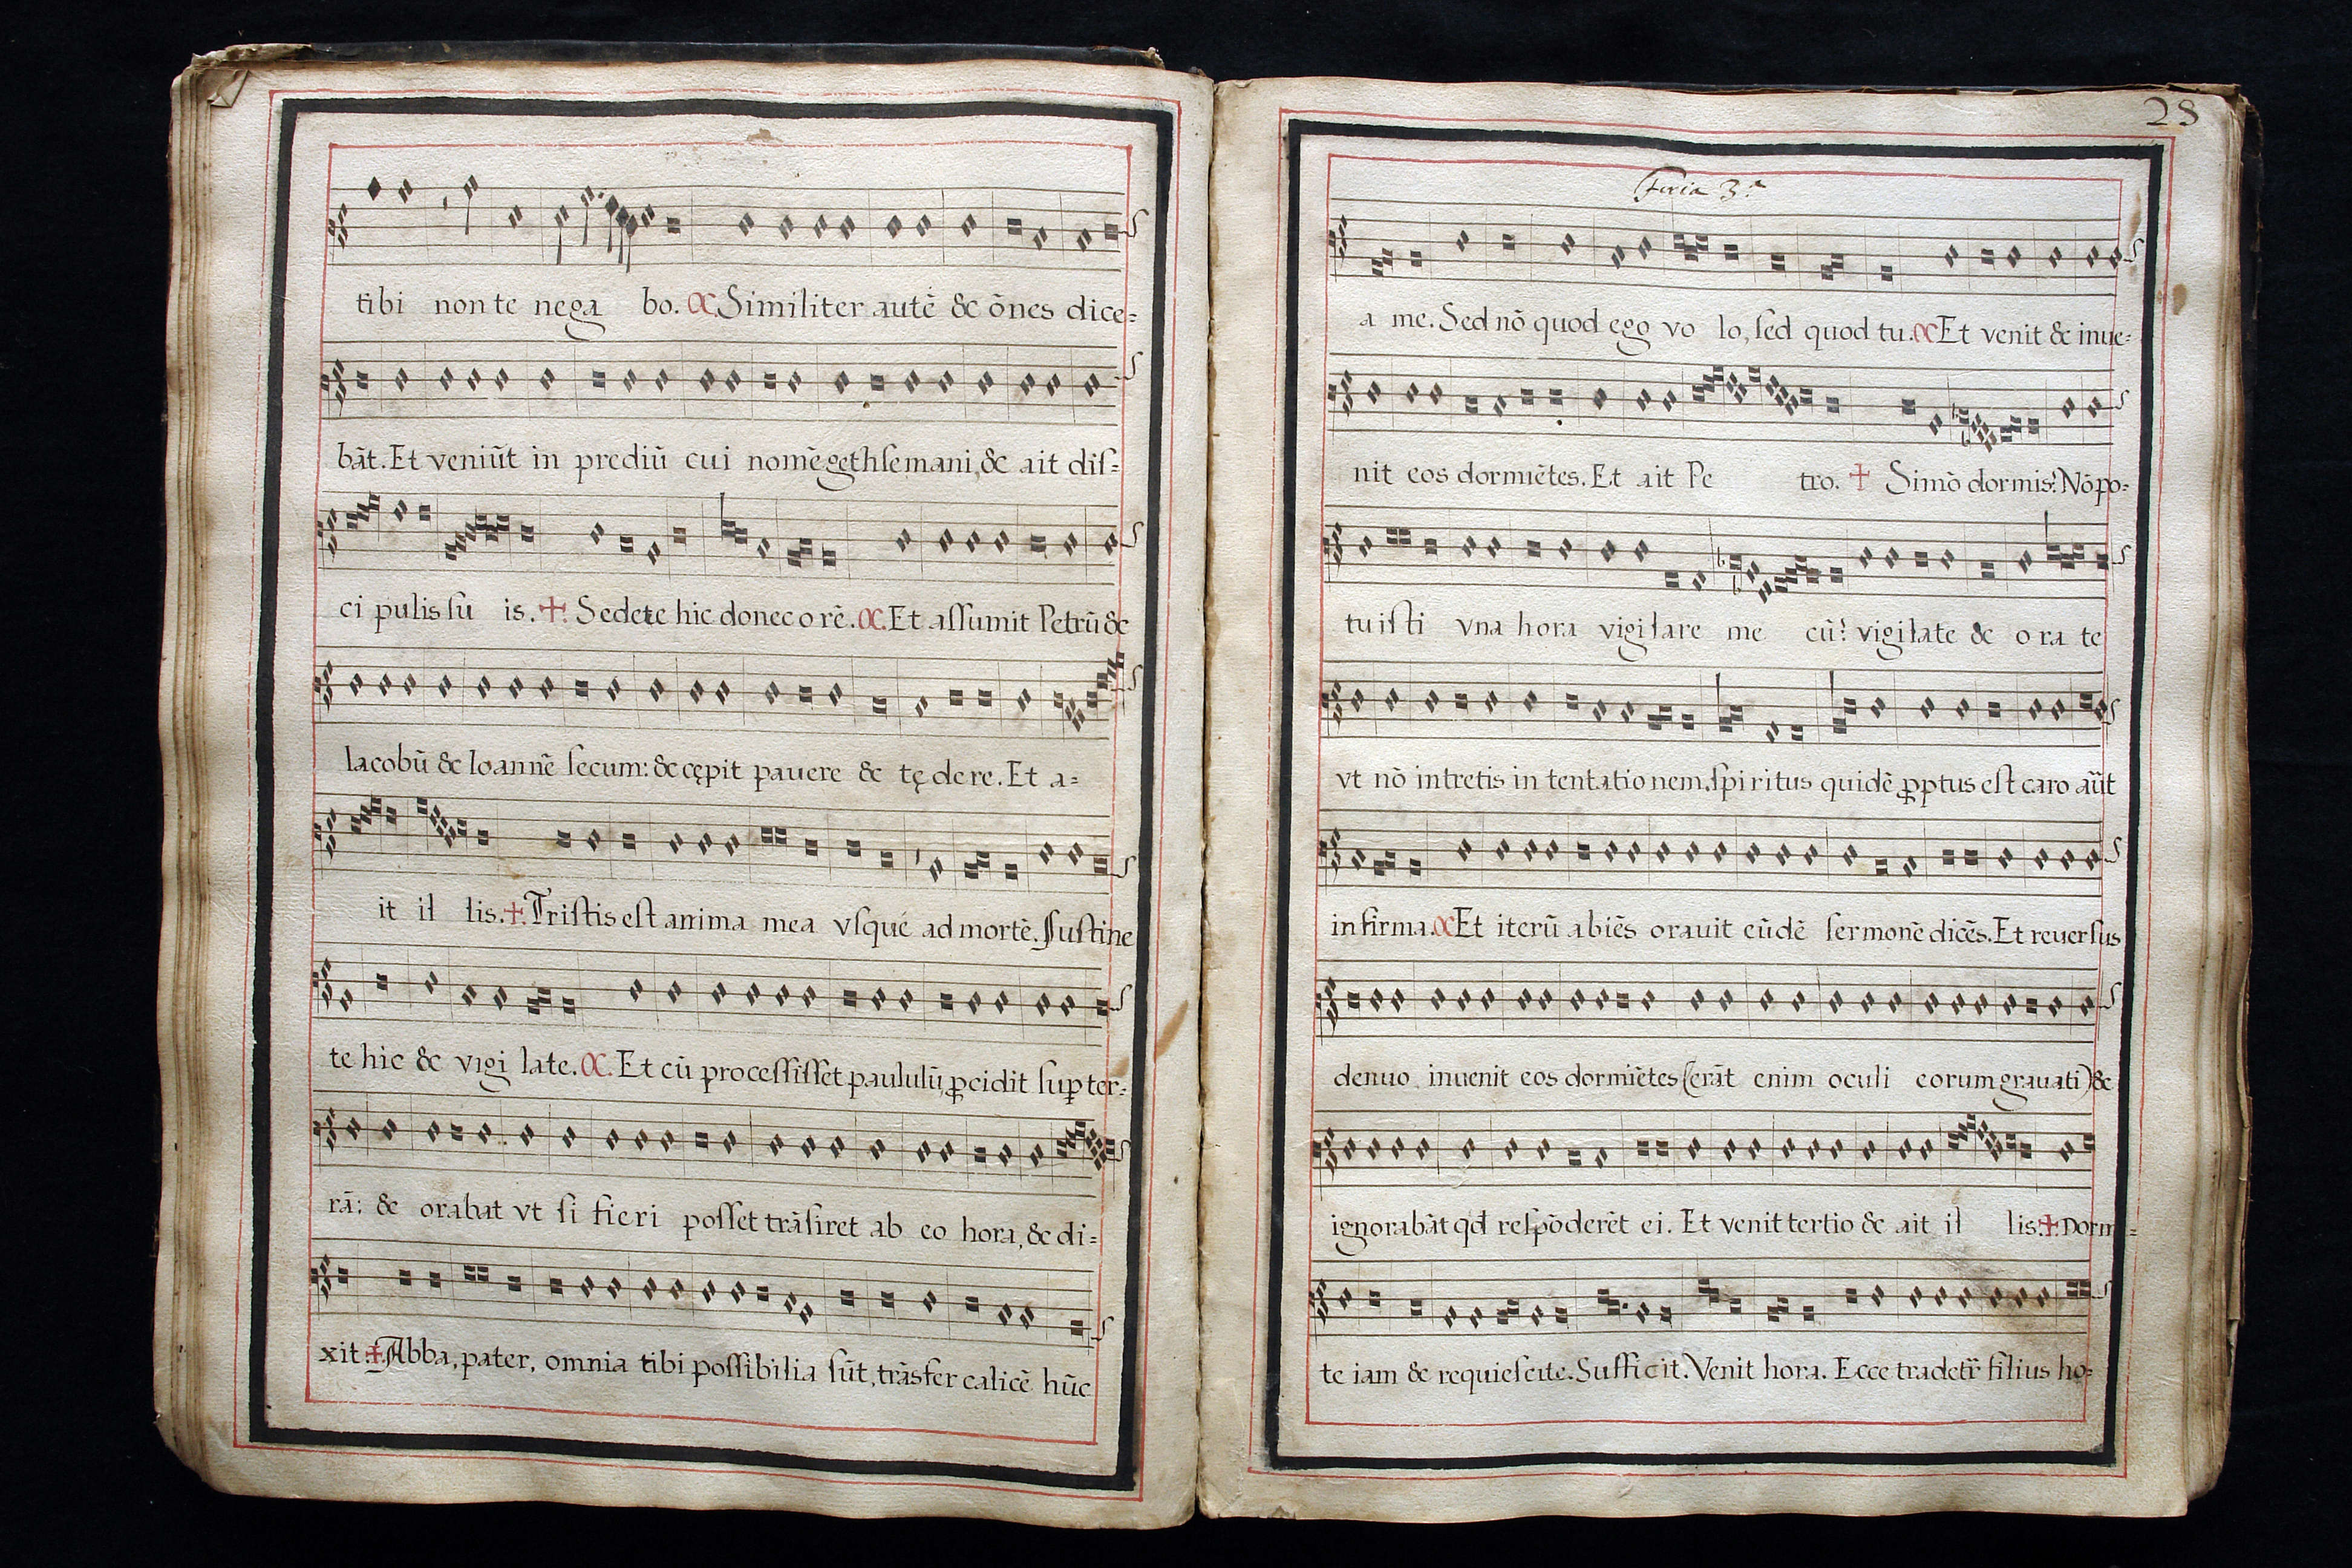 tibi non te nega bo. α Similiter autē & ōnes dice=
bāt. Et veniūt in prediū cui nomē gethsemani, & ait diſ=
ci pulis ſu is. ✠. Sedete hic donec o rē. α. Et aſſumit Petrū &
Iacobū & Ioannē ſecum: & cępit pauere & tę de re. Et a=
it il lis. ✠. Triſtis eſt anima mea vſque ad mortē. Suſtine
te hic & vigi late. α. Et cū proceſſiſſet paululū, ꝓcidit ſuꝑ ter=
rā: & orabat vt ſi fieri poſſet trāſiret ab eo hora, & di=
xit: ✠. Abba, pater, omnia tibi poſſibilia ſūt, trāsfer calicē hūc
28
Feria 3.ª
a me. Sed nō quod ego vo lo, ſed quod tu. α Et venit & inue=
nit eos dormiētes. Et ait Pe tro. ✠ Simō dormis? Nō po=
tuiſti vna hora vigilare me cū? vigilate & o ra te
vt nō intretis in tentatio nem. ſpiritus quidē ꝓptus eſt caro aūt
infirma. α Et iterū abiēs orauit eūdē ſermonē dicēs. Et reuerſus
denuo inuenit eos dormiētes (erāt enim oculi eorum grauati) &
ignorabāt qd̄ reſpōderēt ei. Et venit tertio & ait il lis. ✠. Dormi=
te iam & requieſcite. Sufficit. Venit hora. Ecce tradetr̄ filius ho=